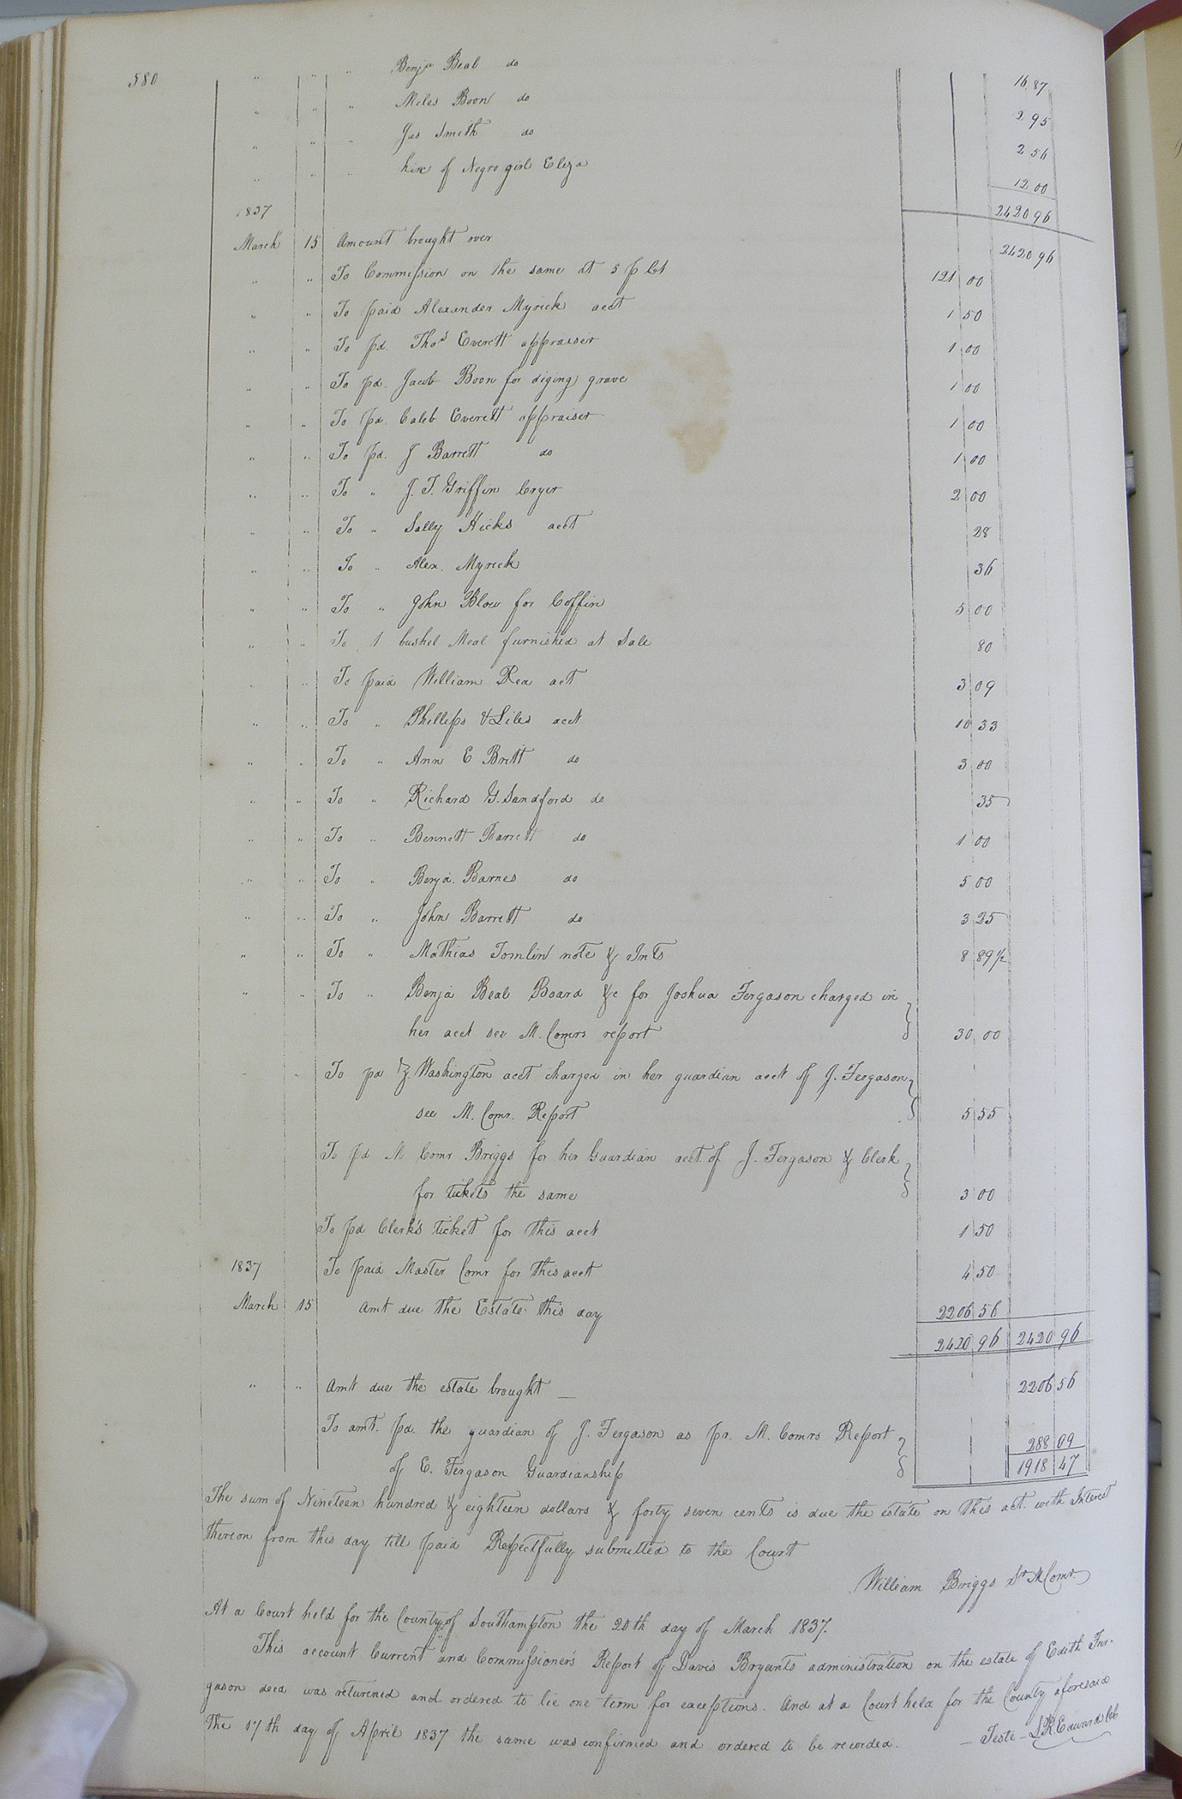 580
" " " Benja Beal do 16 87
" " " Miles Boon do 2 95
" " " Jas Smith do 2 56
" " " hire of Negro girl Eliza 12 00
1837 2420 96
March 15 Amount brought over 2420 96
" " To Commission on the same at 5 p Ct 121 00
" " To paid Alexander Myrick acct 1 50
" " To pd. Thos Everett appraiser 1 00
" " To pd. Jacob Boon for diging grave 1 00
" " To pd. Caleb Everett appraiser 1 00
" " To pd. J Barrett do 1 00
" " To " J. T. Griffin Cryer 2 00
" " To " Sally Hicks acct 28
" " To " Alex. Myrick 36
" " To " John Blow for Coffin 5 00
" " To 1 bushel Meal furnished at Sale 80
" " To paid William Rea act 3 09
" " To " Phillips & Liles acct 10 33
" " To " Ann E Britt do 3 00
" " To " Richard G. Sandford do 35
" " To " Bennett Barrett do 1 00
" " To " Benja. Barnes do 5 00
" " To " John Barrett do 3 25
" " To " Mathias Tomlin note & Ints 8 89 1/2
" " To " Benja Beal Board &c for Joshua Fergason charged in
her acct see M. Comrs report 30 00
" " To pd Washington acct charged in her guardian acct of J. Fergason
see M. Comr. Report 5 55
To pd M Comr Briggs for her Guardian acct. of J. Fergason & Clerk
for tickets the same 3 00
To pd Clerk's ticket for this acct 1 50
1837 To paid Master Comr for this acct 4 50
March 15 Amt due the Estate this day 2206 56
2420 96 2420 96
" " Amt due the estate brought 2206 56
To amt. pd. the guardian of J. Fergason as pr. M. Comrs Report
of E. Fergason Guardianship 288 09
1918 47
The sum of Nineteen hundred & eighteen dollars & forty seven cents is due the estate on this act. with Interest
thereon from this day till paid Respectfully submitted to the Court
William Briggs Sr M Comr.
At a Court held for the County of Southampton the 20th day of March 1837.
This account Current and Commissioner's Report of Davis Bryants administration on the estate of Edith Fer-
gason decd was returned and ordered to lie one term for exceptions. And at a Court held for the County aforesaid
The 17th day of April 1837 the same was confirmed and ordered to be recorded.
Teste L R Edwards Clk